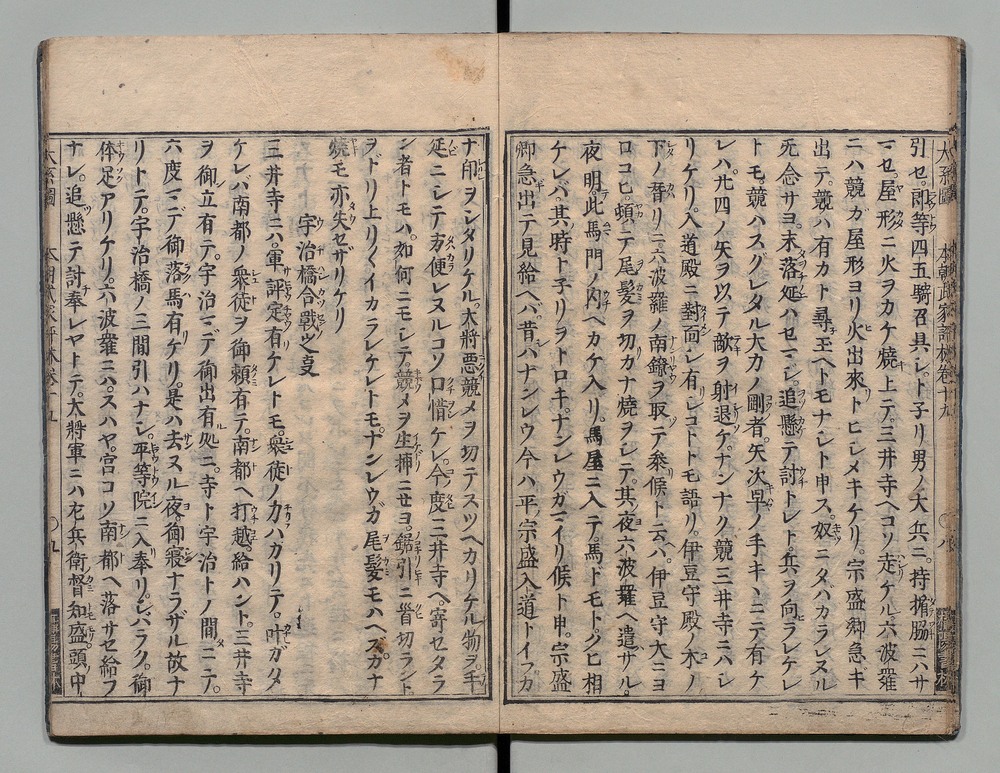 引セ。郎等四五騎召具シ。ト子リ男ノ大兵ニ。持楯脇ニハサ
マセ。屋形ニ火ヲカケ焼上テ。三井寺ヘコソ走ケル六波羅
ニハ競カ屋形ヨリ火出來トヒシメキケリ。宗盛卿急ギ
出テ。競ハ有カト尋玉ヘトモナシト申ス。奴ニタハカラレヌル
无念サヨ。末落延ハセマシ。追懸テ討トレト。兵ヲ向ラレケレ
トモ。競ハスグレタル大力ノ剛者。矢次早ノ手キヽニテ有ケ
レハ。廿四ノ矢ヲ以テ敵ヲ射退ケ。ナンナク競三井寺ニハシ
リケリ。入道殿ニ對面シ有シコトトモ語リ。伊豆守殿ノ木ノ
下ノ替リニ。六波羅ノ南鐐ヲ取テ参候ト云ハ。伊豆守大ニヨ
ロコヒ。頓テ尾髪ヲ切カナ焼ヲシテ。其夜六波羅ヘ遣サル。
夜明此馬門ノ内ヘカケ入リ。馬屋ニ入テ。馬トモトクヒ相
ケレバ。其時ト子リヲトロキ。ナンレウガマイリ候ト申。宗盛
卿急出テ見給ヘバ。昔ハナンレウ今ハ平ノ宗盛入道トイフカ
ナ印ヲシタリケル。大將悪競メヲ切テスツヘカリケル物ヲ。手
延ニシテ方便レヌルコソ口惜ケレ。今度三井寺ヘ寄セタラ
ン者トモハ。如何ニモシテ競メヲ生捕ニセヨ。鋸引ニ首切ラント
ヲドリ上リ〳〵イカラレケレトモ。ナンレウガ尾髪モハヘス。カナ
焼モ亦失セザリケリ
宇治橋合戰之亊
三井寺ニハ。軍評定有ケレトモ。衆徒ノ力ハカリテ。叶ガタ
ケレバ南都ノ衆徒ヲ御頼有テ。南都ヘ打越給ハント。三井寺
ヲ御立有テ。宇治マデ御出有処ニ。寺ト宇治トノ間ニテ。
六度マデ御落馬有リケリ。是ハ去ヌル夜。御寝ナラザル故ナ
リトテ。宇治橋ノ三間引ハナシ。平等院ニ入奉リ。シバラク。御
休足アリケリ。六波羅ニハ。スハヤ。宮コソ南都ヘ落サセ給フ
ナレ。追懸テ討奉レヤトテ。大將軍ニハ左兵衛督知盛。頭ノ中